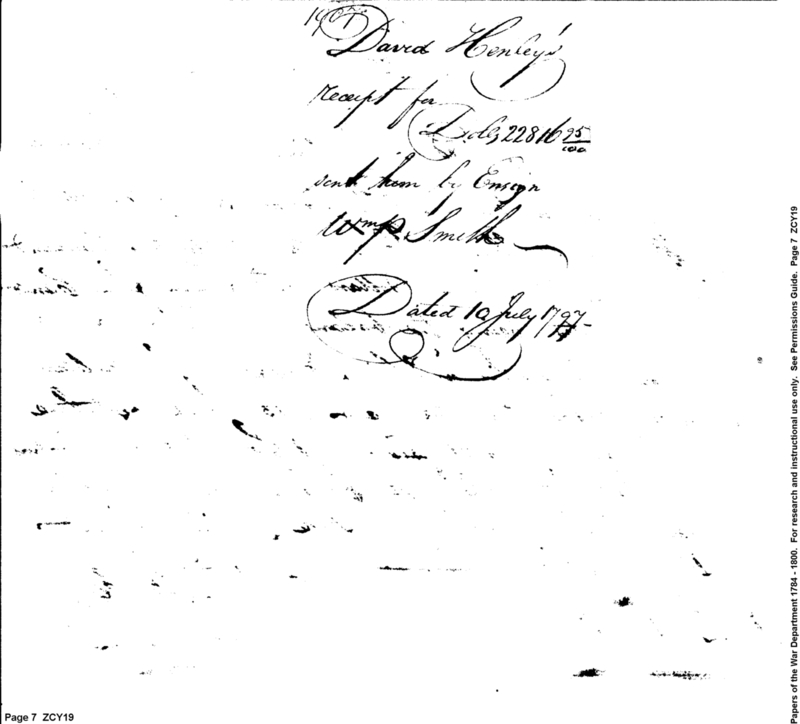 David Henley's
receipt for
Dols 22816 95/100
sent him by Ensign
Wm P. Smith
Dated 10 July 1797
Page 7 ZCY19
Papers of the War Department 1784 - 1800. For research and instructional use only. See Permissions Guide. Page 7 ZCY19